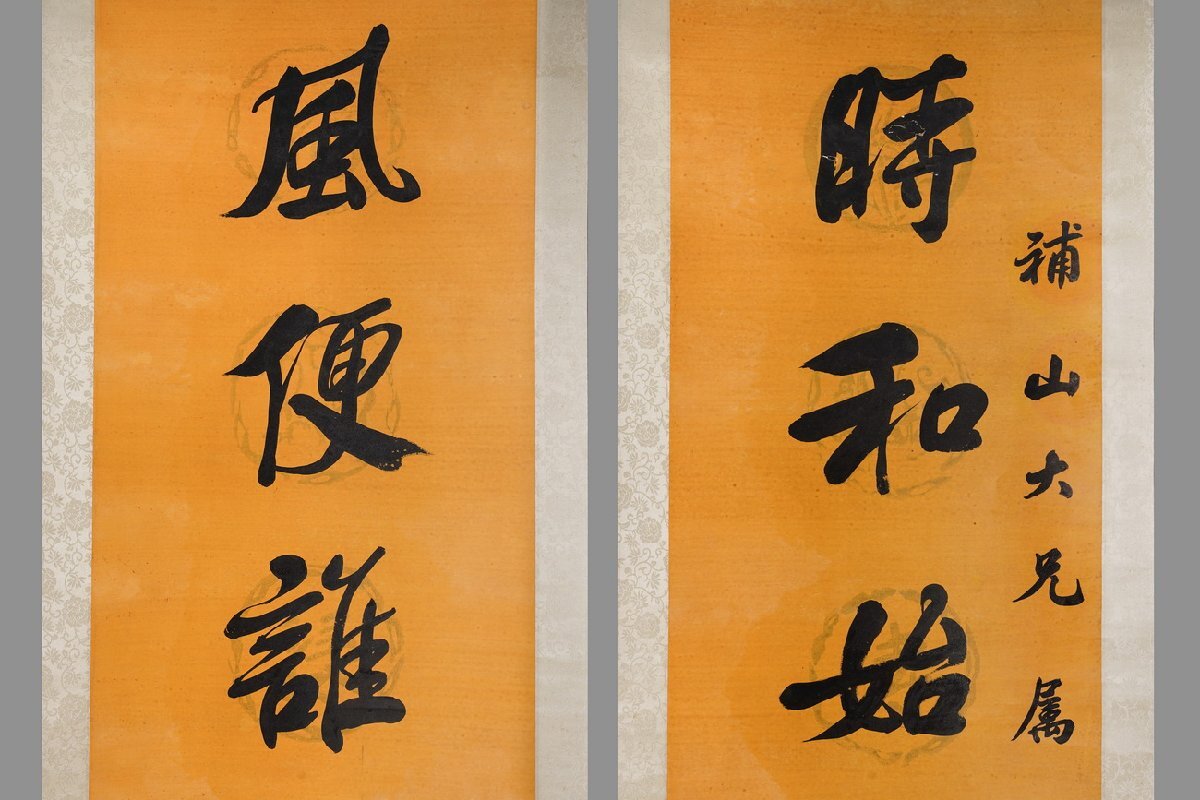 補山大兄属
時和始
風便誰